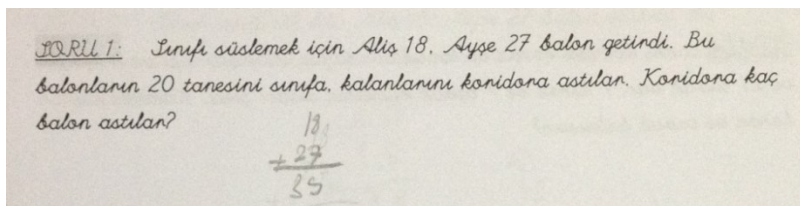 SORU 1: Sınıfı süslemek için Aliş 18, Ayşe 27 balon getirdi. Bu
balonların 20 tanesini sınıfa, kalanlarını koridora astılar. Koridora kaç
balon astılar?
18
+ 27
35